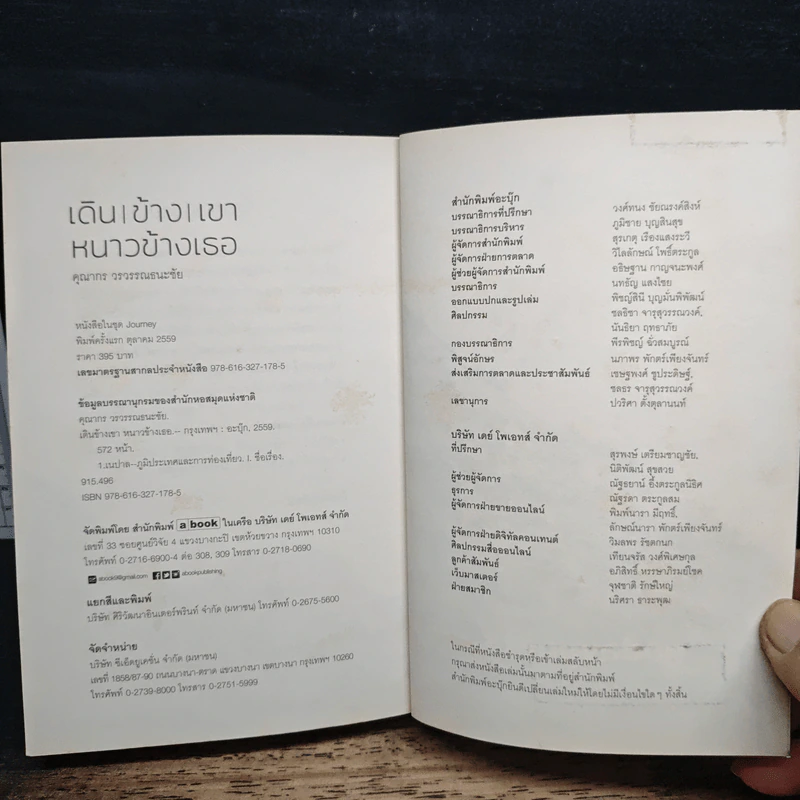 เดิน|ข้าง|เขา
หนาวข้างเธอ
คุณากร วรวรรณธนะชัย
หนังสือในชุด Journey
พิมพ์ครั้งแรก ตุลาคม 2559
ราคา 395 บาท
เลขมาตรฐานสากลประจำหนังสือ 978-616-327-178-5
ข้อมูลบรรณานุกรมของสำนักหอสมุดแห่งชาติ
คุณากร วรวรรณธนะชัย.
เดินข้างเขา หนาวข้างเธอ.-- กรุงเทพฯ : อะบุ๊ก, 2559.
572 หน้า.
1.เนปาล--ภูมิประเทศและการท่องเที่ยว. I. ชื่อเรื่อง.
915.496
ISBN 978-616-327-178-5
จัดพิมพ์โดย สำนักพิมพ์ a book ในเครือ บริษัท เดย์ โพเอทส์ จำกัด
เลขที่ 33 ซอยศูนย์วิจัย 4 แขวงบางกะปิ เขตห้วยขวาง กรุงเทพฯ 10310
โทรศัพท์ 0-2716-6900-4 ต่อ 308, 309 โทรสาร 0-2718-0690
abook9@gmail.com abookpublishing
แยกสีและพิมพ์
บริษัท ศิริวัฒนาอินเตอร์พริ้นท์ จำกัด (มหาชน) โทรศัพท์ 0-2675-5600
จัดจำหน่าย
บริษัท ซีเอ็ดยูเคชั่น จำกัด (มหาชน)
เลขที่ 1858/87-90 ถนนบางนา-ตราด แขวงบางนา เขตบางนา กรุงเทพฯ 10260
โทรศัพท์ 0-2739-8000 โทรสาร 0-2751-5999
สำนักพิมพ์อะบุ๊ก
บรรณาธิการที่ปรึกษา วงศ์ทนง ชัยณรงค์สิงห์
บรรณาธิการบริหาร ภูมิชาย บุญสินสุข
ผู้จัดการสำนักพิมพ์ สุรเกตุ เรืองแสงระวี
ผู้จัดการฝ่ายการตลาด วิไลลักษณ์ โพธิ์ตระกูล
ผู้ช่วยผู้จัดการสำนักพิมพ์ อธิษฐาน กาญจนะพงศ์
บรรณาธิการ นทธัญ แสงไชย
ออกแบบปกและรูปเล่ม พิชญ์สินี บุญมั่นพิพัฒน์
ศิลปกรรม ชลธิชา จารุสุวรรณวงค์,
นันธิยา ฤทธาภัย
กองบรรณาธิการ พีรพิชญ์ ฉั่วสมบูรณ์
พิสูจน์อักษร นภาพร พักตร์เพียงจันทร์
ส่งเสริมการตลาดและประชาสัมพันธ์ เชษฐพงศ์ ชูประดิษฐ์,
ชลธร จารุสุวรรณวงค์
เลขานุการ ปวริศา ตั้งตุลานนท์
บริษัท เดย์ โพเอทส์ จำกัด
ที่ปรึกษา สุรพงษ์ เตรียมชาญชัย,
นิติพัฒน์ สุขสวย
ผู้ช่วยผู้จัดการ ณัฐธยาน์ อึ้งตระกูลนิธิศ
ธุรการ ณัฐรดา ตระกูลสม
ผู้จัดการฝ่ายขายออนไลน์ พิมพ์นารา มีฤทธิ์,
ลักษณ์นารา พักตร์เพียงจันทร์
ผู้จัดการฝ่ายดิจิทัลคอนเทนต์ วิมลพร รัชตกนก
ศิลปกรรมสื่อออนไลน์ เทียนจรัส วงศ์พิเศษกุล
ลูกค้าสัมพันธ์ อภิสิทธิ์ หรรษาภิรมย์โชค
เว็บมาสเตอร์ จุฬชาติ รักษ์ใหญ่
ฝ่ายสมาชิก นริศรา ธาระพุฒ
ในกรณีที่หนังสือชำรุดหรือเข้าเล่มสลับหน้า
กรุณาส่งหนังสือเล่มนั้นมาตามที่อยู่สำนักพิมพ์
สำนักพิมพ์อะบุ๊กยินดีเปลี่ยนเล่มใหม่ให้โดยไม่มีเงื่อนไขใด ๆ ทั้งสิ้น